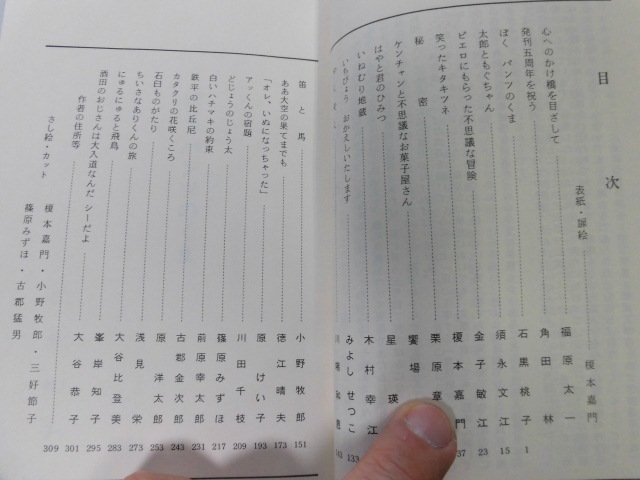 目次
表紙・扉絵 榎本嘉門
心へのかけ橋を目ざして 福原太一
発刊五周年を祝う 角田林
ぼく パンツのくま 石黒桃子 1
太郎ともぐちゃん 須永文江 15
ピエロにもらった不思議な冒険 金子敏江 23
笑ったキタキツネ 榎本嘉門 37
秘密 栗原章
ケンチャンと不思議なお菓子屋さん 饗場
はやと君のひみつ 星瑛
いねむり地蔵 木村幸江
いちびょう おかえしいたします みよしせつこ 133
143
笛と馬 小野牧郎 151
ああ大空の果てまでも 徳江晴夫 173
「オレ、いぬになっちゃった」 原けい子 193
アッくんの宿題 川田千枝 209
どじょうのじょう太 篠原みずほ 217
白いハチマキの約束 前原幸太郎 231
鉄平の比丘尼 古郡金次郎 243
カタクリの花咲くころ 原洋太郎 253
石臼ものがたり 浅見栄 273
ちいさなありくんの旅 大谷比登美 283
にゅるにゅると飛鳥 峯岸知子 295
酒田のおじさんは大入道なんだ シーだよ 大谷恭子 301
作者の住所等 309
さし絵・カット 榎本嘉門・小野牧郎・三好節子
篠原みずほ・古郡猛男